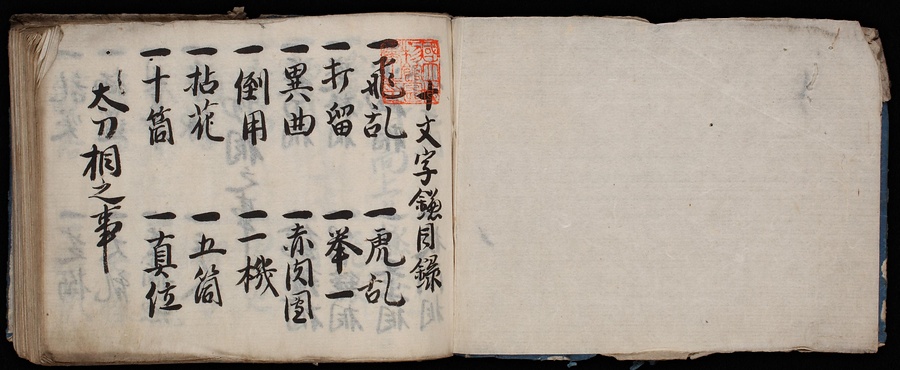 十文字鎌目録
一飛乱 一虎乱
一打留 一挙一
一異曲 一赤肉団
一倒用 一一機
一拈花 一五箇
一十箇 一真位
太刀相之事